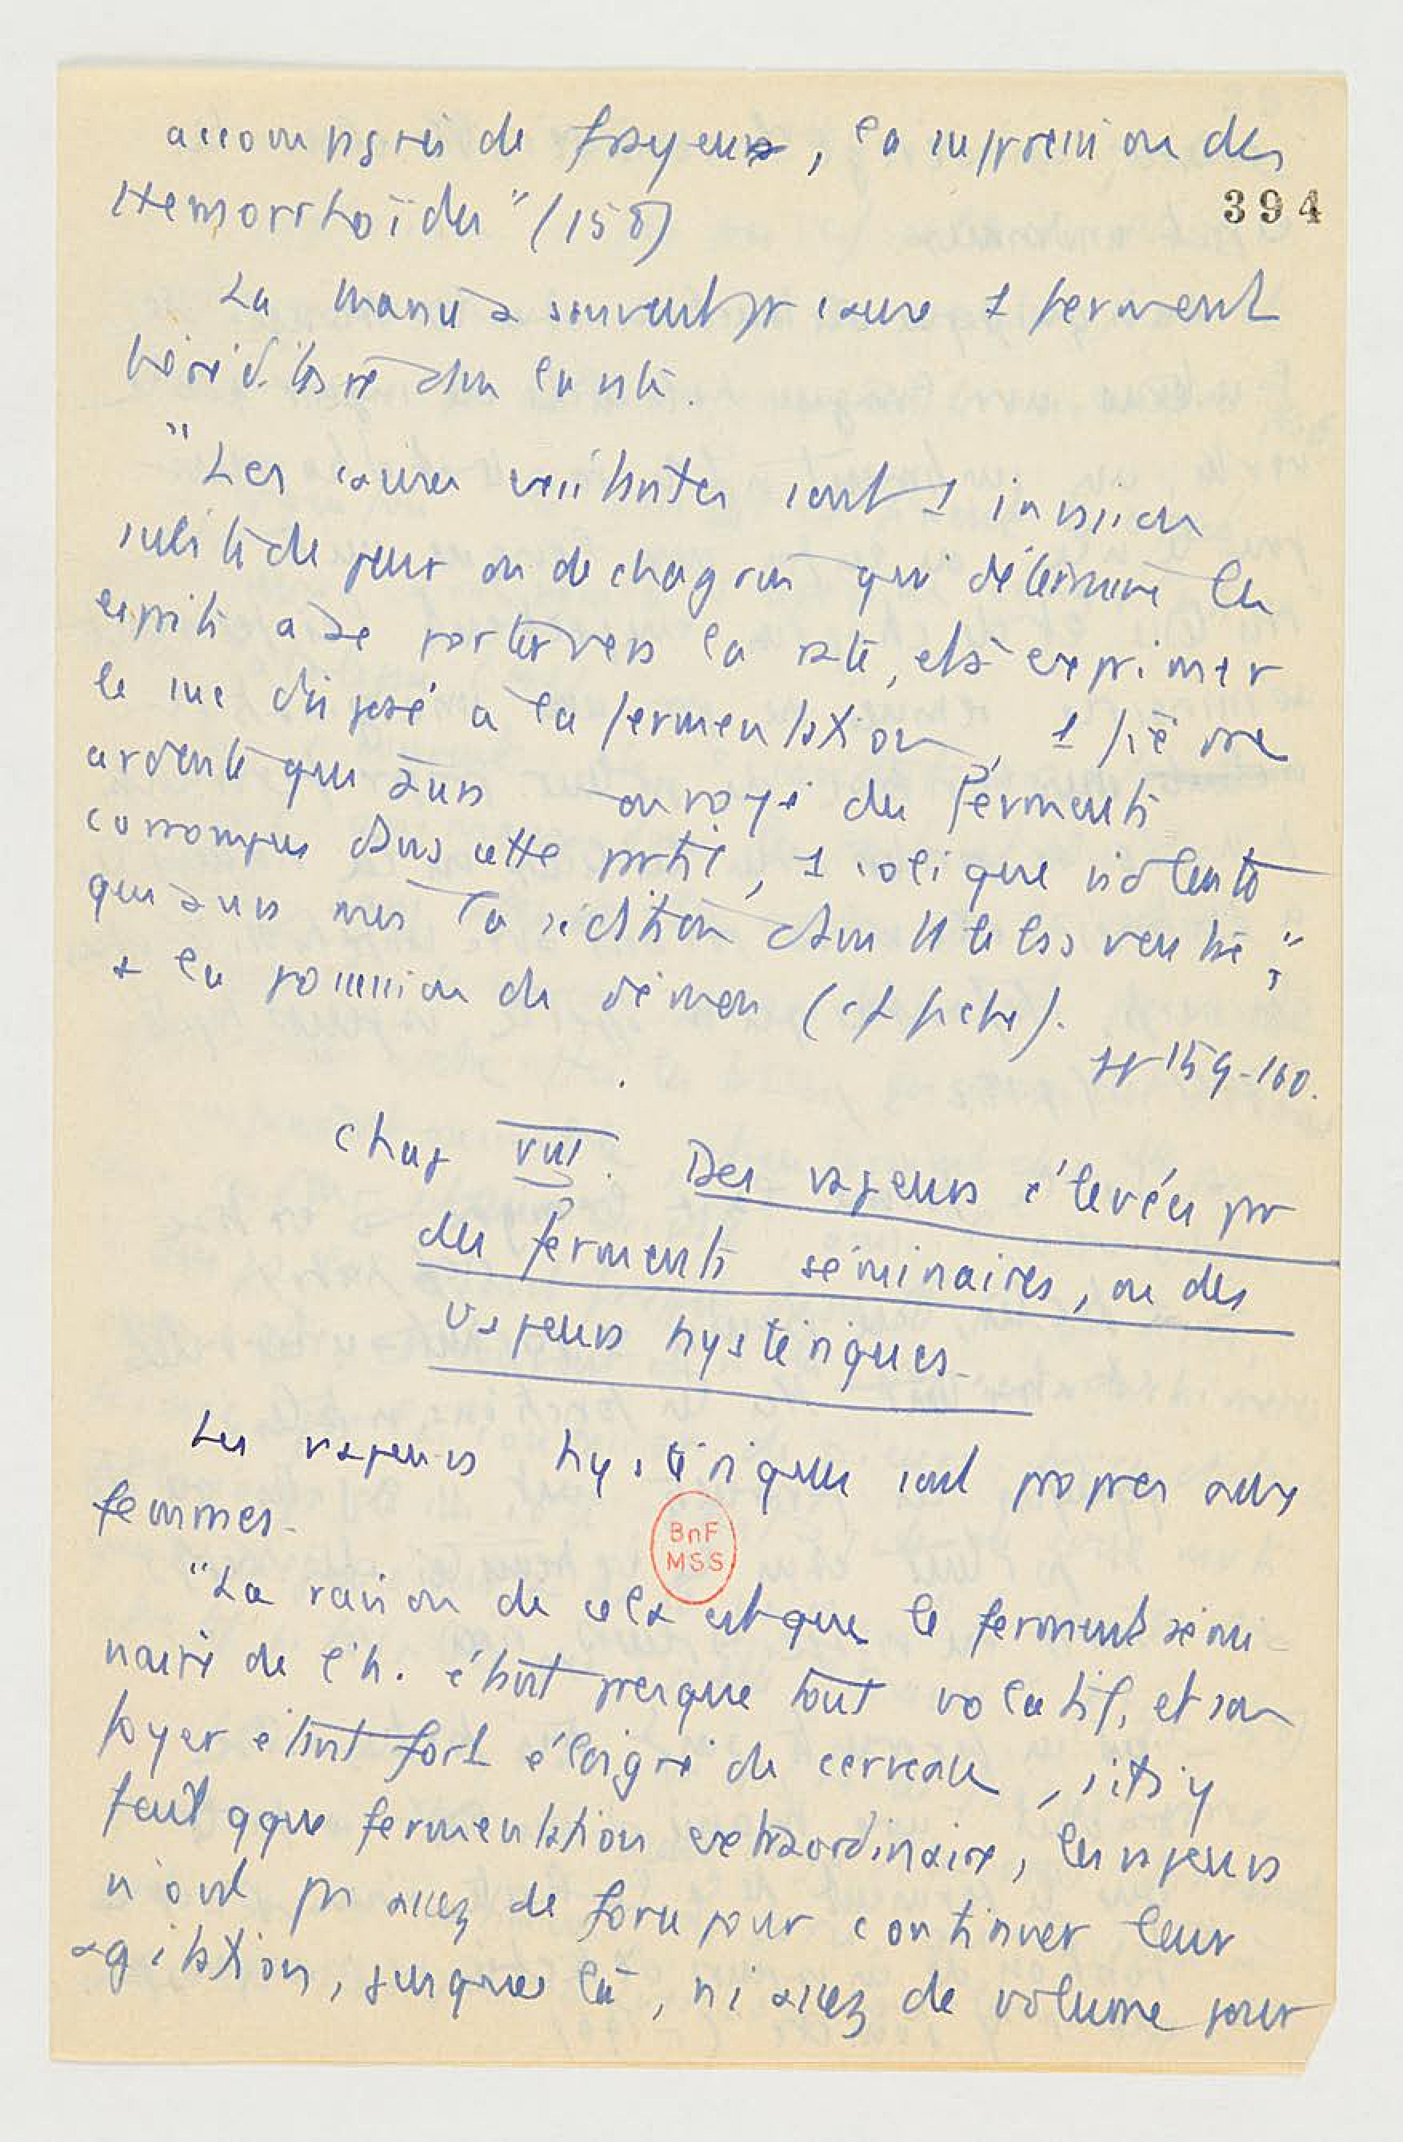 accompagnés de frayeur, la suppression des
394
Hemorrhoïdes" (158)
La manie a souvent pr cause 1 ferment
héréditaire dans la rate.
"Les causes excitantes sont 1 invasion
subite de peur ou de chagrin qui détermine les
esprits à se porter vers la rate, et à exprimer
le suc disposé à la fermentation, 1 fièvre
ardente qui aura envoyé des ferments
corrompus dans cette partie, 1 colique violente
qui aura mis la sédition dans tt le bas ventre",
& la possession du démon (cf fiche).
pp 159-160.
Chap VIII. Des vapeurs élevées par
des ferments séminaires, ou des
vapeurs hystériques.
Les vapeurs hystériques sont propres aux
femmes.
BnF
MSS
"La raison de cela est que le ferment sémi-
naire de l'h. étant presque tout volatil, et son
foyer étant fort éloigné du cerveau, s'il s'y
fait qque fermentation extraordinaire, les vapeurs
n'ont pas assez de force pour continuer leur
agitation, jusques là, ni assez de volume pour